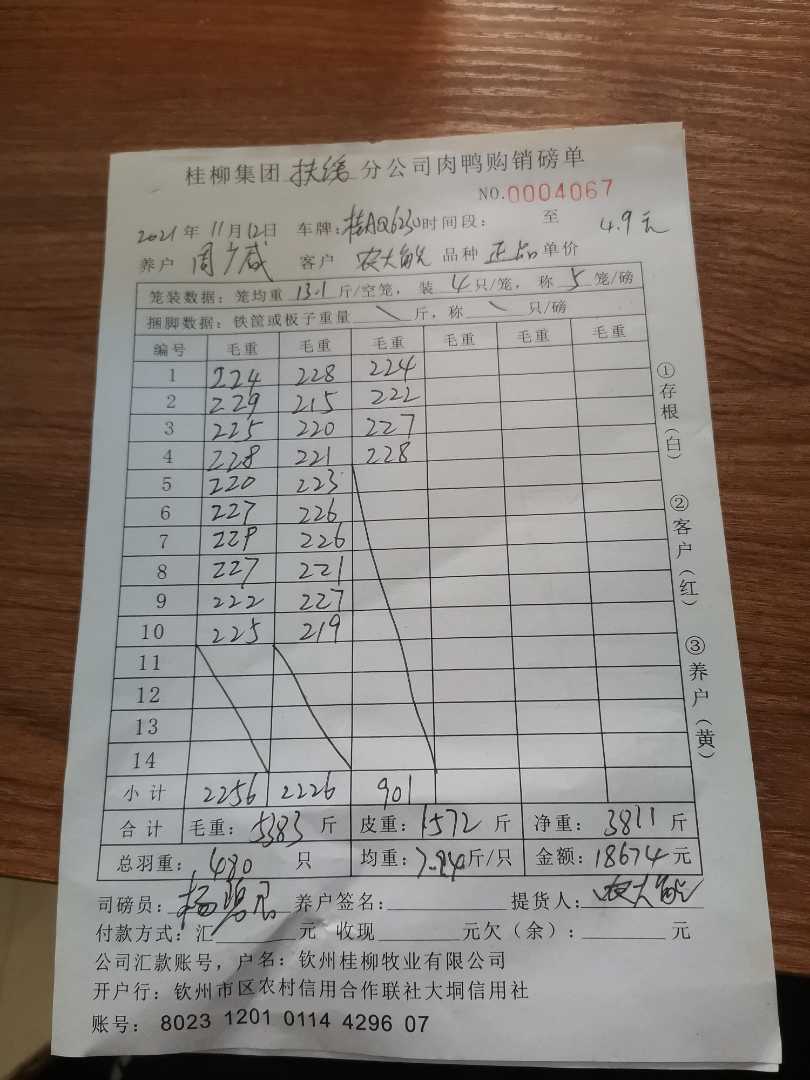 桂柳集团扶绥分公司肉鸭购销磅单
NO.0004067
2021年11月12日 车牌:桂AQ6230时间段: 至 4.9元
养户 周广咸 客户 农大能 品种 正品 单价
笼装数据:笼均重 13.1 斤/空笼, 装 4 只/笼, 称 5 笼/磅
捆脚数据:铁筐或板子重量 \ 斤,称 \ 只/磅
编号 毛重 毛重 毛重 毛重 毛重 毛重
1 224 228 224
2 229 215 222
3 225 220 227
4 228 221 228
5 220 223
6 227 226
7 229 226
8 227 221
9 222 227
10 225 219
11
12
13
14
小计 2256 2226 901
合计 毛重:5383斤 皮重:1572斤 净重:3811斤
总羽重:480 只 均重:7.94斤/只 金额:18674元
司磅员: 养户签名: 提货人:农大能
付款方式:汇 元 收现 元欠(余): 元
公司汇款账号,户名:钦州桂柳牧业有限公司
开户行:钦州市区农村信用合作联社大垌信用社
账号: 8023 1201 0114 4296 07
①存根(白) ②客户(红) ③养户(黄)